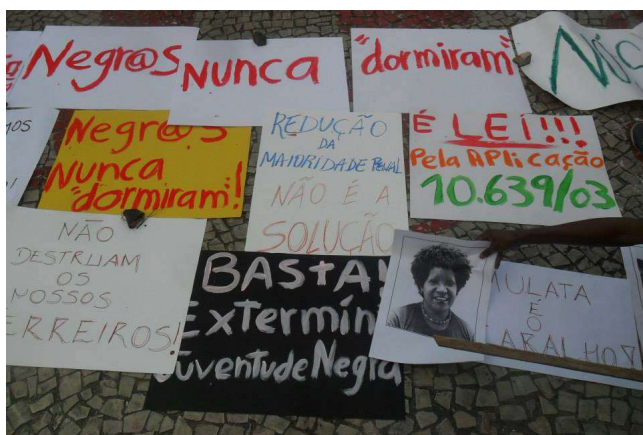 Negr@s
NUNCA
"dormiram"
Negr@s
Nunca
"dormiram"!
REDUÇÃO
DA
MAIORIDADE PENAL
NÃO É A
SOLUÇÃO
É LEI!!!
Pela APlicação
10.639/03
NÃO
DESTRUAM
OS
NOSSOS
ERREIROS!
BASTA!
Extermín
Juventude Negra
ULATA
É O
ARALHO